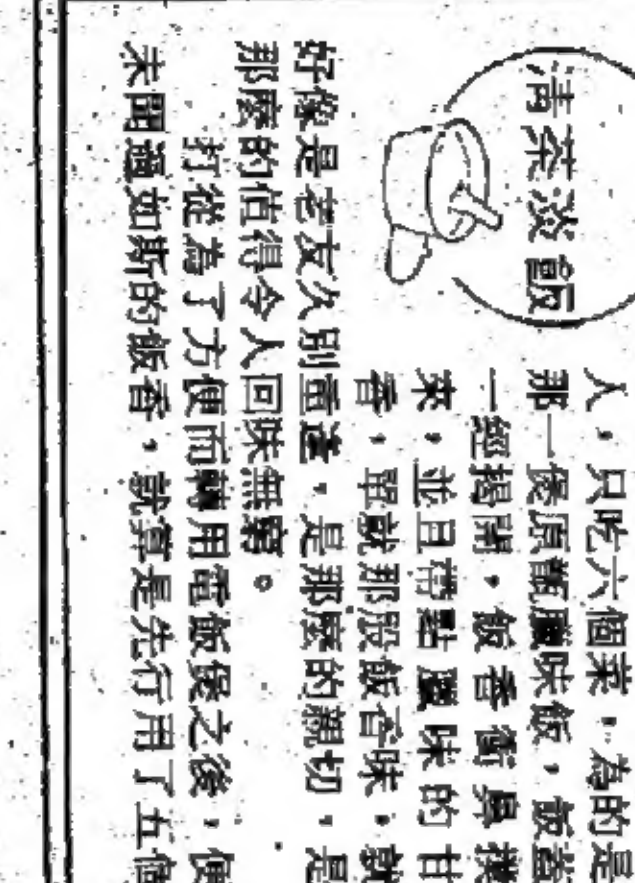 清茶淡飯
人，只吃六個菜，為的是
那一煲原觀臘味飯，飯蓋
一經揭開，飯香衝鼻撲
來，並且帶點臘味的甘
香，單就那股飯香味，就
好像是老友久別重逢，是那麼的親切，是
那麼的值得令人回味無窮。
打從為了方便而轉用電飯煲之後，便
未聞過如斯的飯香，就算是先行用了五個